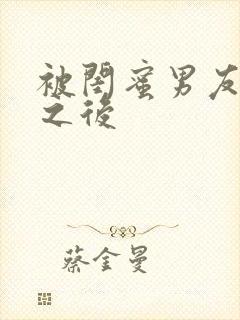 被閨蜜男友
之後
蔡金曼